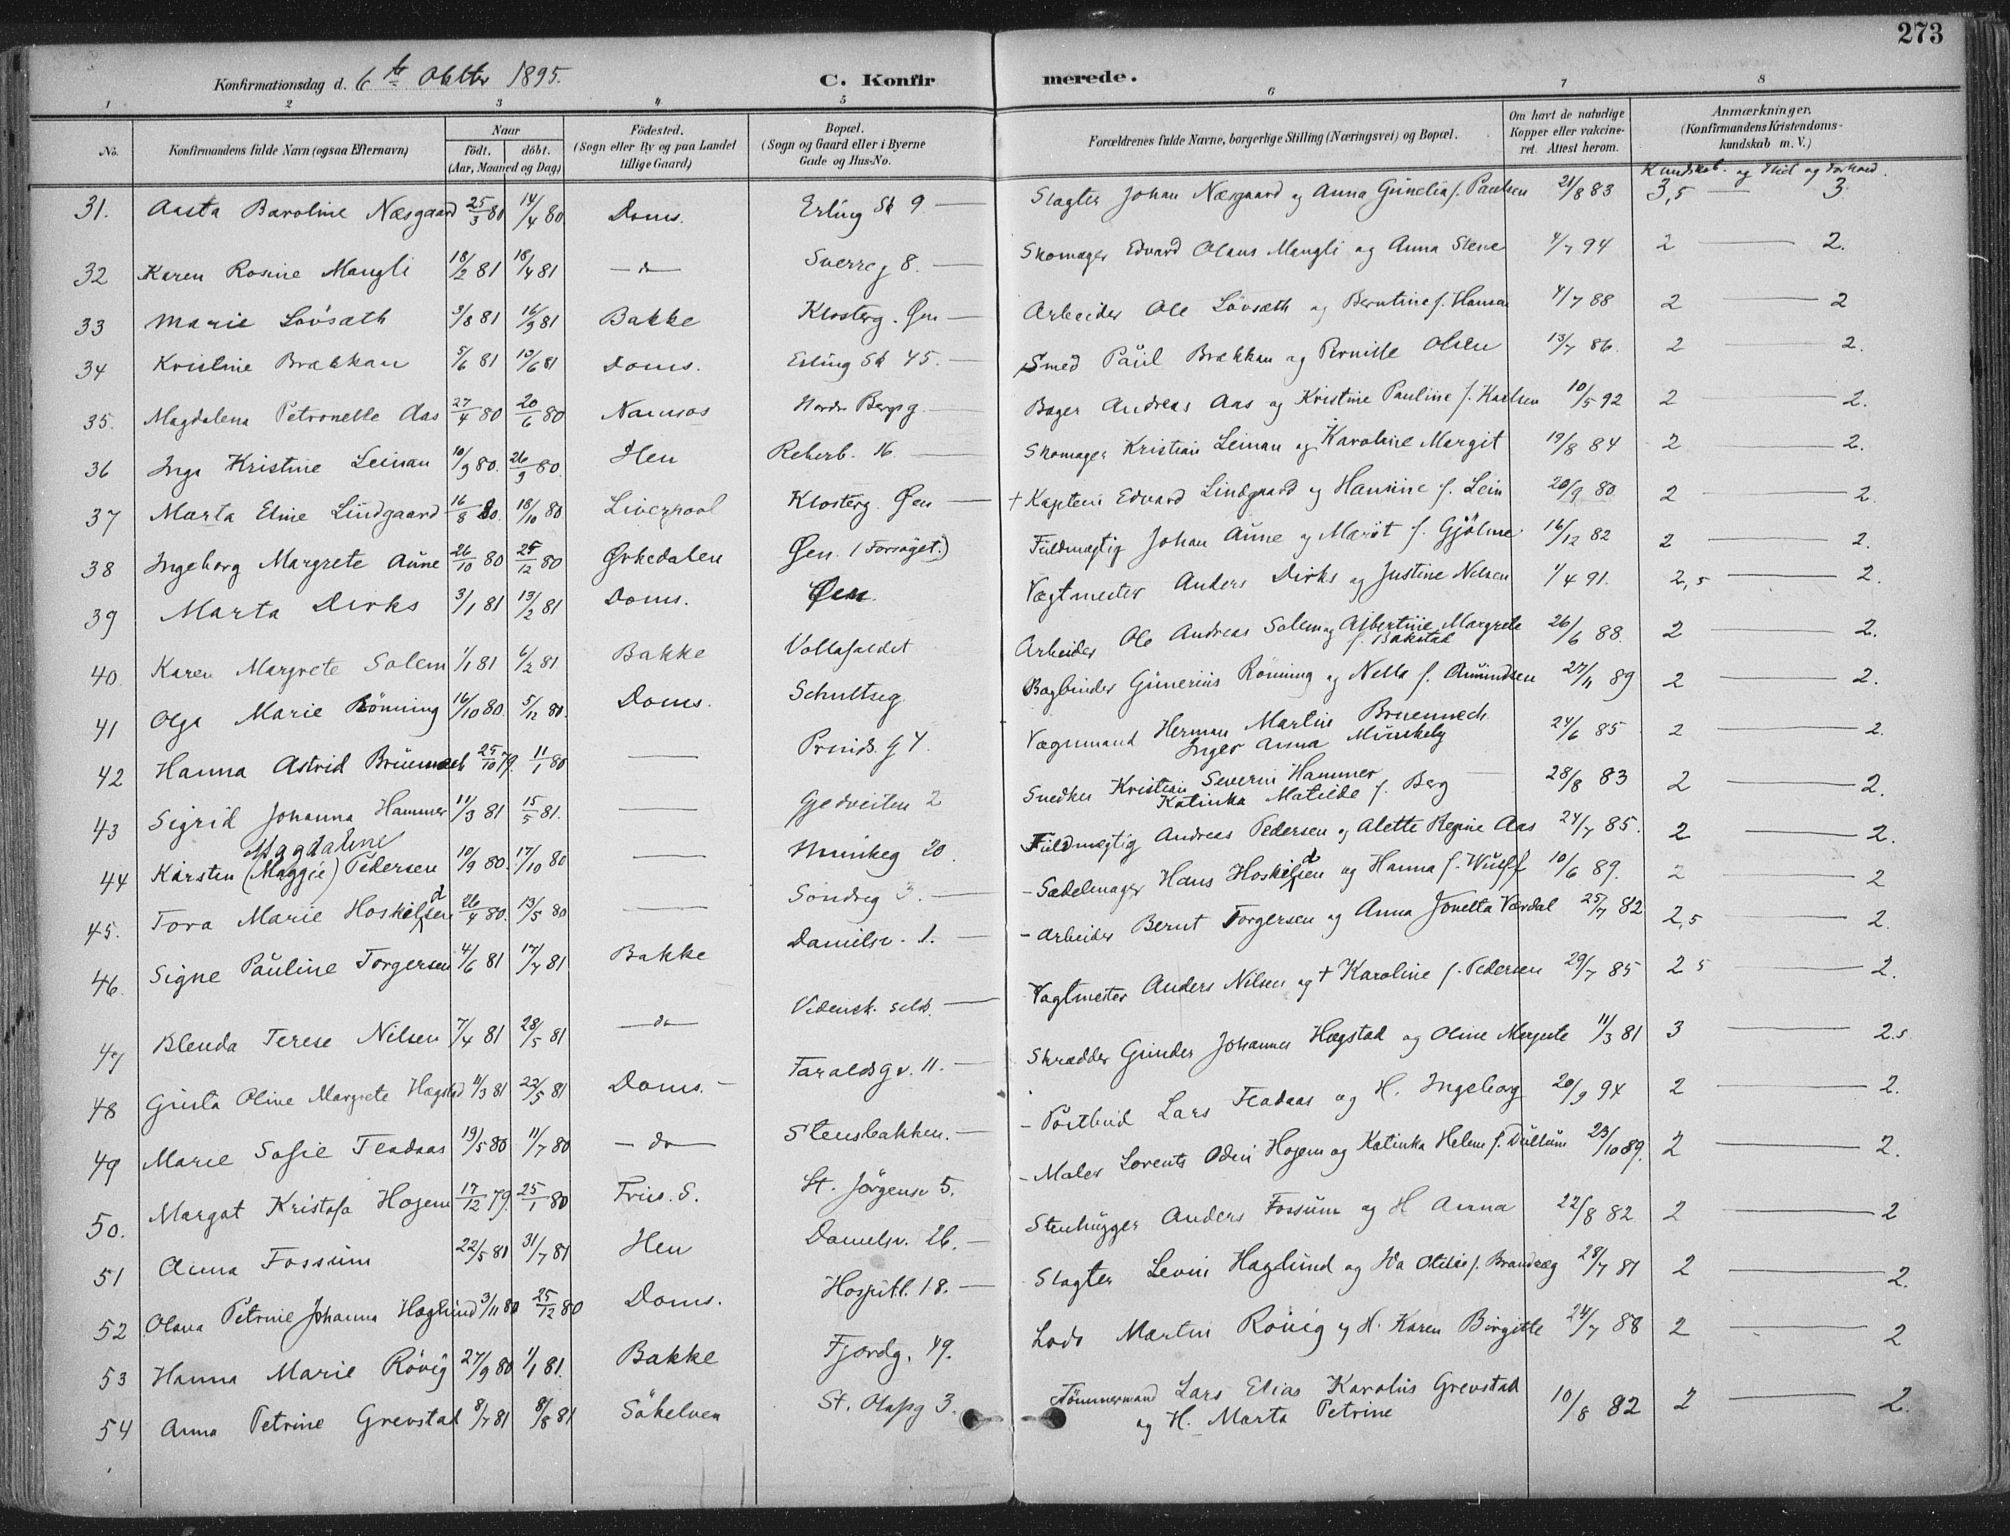 273
Konfirmationsdag d. 6te Oktbr 1895. C. Konfirmerede.
1 2 3 4 5 6 7 8
No. Konfirmandens fulde Navn (ogsaa Efternavn) Naar født. døbt. (Aar, Maaned og Dag) Fødested. (Sogn eller By og paa Landet tillige Gaard) Bopæl. (Sogn og Gaard eller i Byerne Gade og Hus-No. Forældrenes fulde Navne, borgerlige Stilling (Næringsvei) og Bopæl. Om havt de naturlige Kopper eller vakcineret. Attest herom. Anmærkninger. (Konfirmandens Kristendomskundskab m. V.)
Kundskab. og Flid og Forhold.
31. Aasta Baroline Næsgaard 25/3 80 14/4 80 Doms. Erling Sk 9 — Slagter Johan Næsgaard og Anna Gunelia f. Paulsen 21/8 83 3,5 — 3.
32 Karen Rosine Mangli 18/2 81 18/4 81 — do — Sverreg 8. — Skomager Edvard Olaus Mangli og Anna Stene 4/7 94 2 — 2.
33 Marie Lövsæth 3/8 81 16/9 81 Bakke Klosterg. Øen — Arbeider Ole Lövsæth og Berntine f. Hansen 4/7 88 2 — 2
34 Kristine Brækkan 5/6 81 10/6 81 Doms. Erling Sk 45. — Smed Paul Brækkan og Pernille Olsen 13/7 86. 2 — 2.
35. Magdalena Petronelle Aas 27/4 80 20/6 80 Namsos Nordr Bergsg. — Bager Andreas Aas og Kristine Pauline f. Karlsen 10/5 92 2 — 2.
36 Inga Kristine Leinan 10/9 80. 26/9 80. Hen Reberb. 16. — Skomager Kristian Leinan og Karoline Margit 19/8 84 2 — 2.
37 Marta Eline Lindgaard 16/8 80. 18/10 80 Liverpool Klosterg. Øen — + Kaptein Edvard Lindgaard og Hansine f. Lein 20/9 80 2 — 2.
38 Ingeborg Margrete Aune 26/10 80 25/12 80 Ørkedalen Øen. (Forsøget.) Fuldmægtig Johan Aune og Marit f. Gjölme 16/12 82 2 — 2.
39 Marta Dirks 3/1 81 13/2 81 Doms. Øen. Vægtmester Anders Dirks og Justine Nelsen 1/4 91. 2,5 — 2.
40. Karen Margrete Solem 1/1 81 6/2 81 Bakke Vollafaldet Arbeider Ole Andreas Solem og Albertine Margrete f. Bakstad 26/6 88. 2 — 2.
41 Olga Marie Rönning 16/10 80. 5/12 80. Doms. Schultzg. Bogbinder Gunerius Rönning og Nella f. Amundsen 27/11 89 2 — 2.
42 Hanna Astrid Bruemech 25/10 79. 11/1 80 — Prinds. g 4. Vægnmand Herman Martin Bruennech Inger Anna Munkeby 24/6 85 2 — 2.
43 Sigrid Johanna Hammer 11/3 81 15/5 81. — Gjedveiten 2 Snedker Kristian Severin Hammer Katinka Matilde f. Berg 28/8 83 2 — 2.
44 Karsten Magdalene (Maggie) Pedersen 10/9 80. 17/10 80 — Munkeg 20. Fuldmægtig Andreas Pedersen og Alette Regine Aas 24/7 85. 2 — 2.
45. Tora Marie Hoskildsen 26/4 80. 13/5 80 — Söndreg 3. — - Sadelmager Hans Hoskildsen og Hanna f. Wulff 10/6 89. 2 — 2
46. Signe Pauline Torgersen 4/6 81 17/7 81 Bakke Danielsv. 1. — - Arbeider Bernt Torgersen og Anna Jonetta Værdal 25/7 82 2,5 — 2.
47 Blenda Terese Nilsen 7/4 81 28/5 81 — do — Vidensk. selsk. — Vagtmester Anders Nilsen og + Karoline f. Pedersen 29/7 85 2 5 — 2.
48 Gusta Oline Margrete Hægstad 11/3 81 22/5 81 Doms. - Taraldsgv. 11. — Skrædder Gunder Johannes Hægstad og Oline Margrete 11/3 81 3 — 2.5
49 Marie Sofie Feadaas 19/5 80 11/7 80 — do — Stensbakken. — - Postbud Lars Feadaas og H. Ingeborg 20/9 94 2 — 2.
50. Margot Kristofa Hojem 17/12 79. 25/1 80 Frue. S. St. Jörgensv 5. - Maler Lorents Odin Hojem og Katinka Helene f. Dullum 23/10 89. 2 — 2.
51 Anna Fossum 22/5 81 31/7 81 Hen Danielsv. 26. — Stenhugger Anders Fossum og H Anna 22/8 82 2 — 2
52 Olava Petrine Johanna Haglund 3/11 80 25/12 80 Doms. Hospitl. 18. — Slagter Levin Haglund og Ida Otilie f. Brandzæg 28/7 81 2 — 2.
53 Hanna Marie Rövig 27/9 80 1/1 81. Bakke Fjordg. 49. Lods Martin Rövig og H. Karen Birgitte 24/7 88 2 — 2
54 Anna Petrine Grevstad 8/7 81 8/8 81 Sökelven St. Olafsg 3. Tömmermand Lars Elias Karolus Grevstad og H. Marta Petrine 10/8 82 2 — 2.